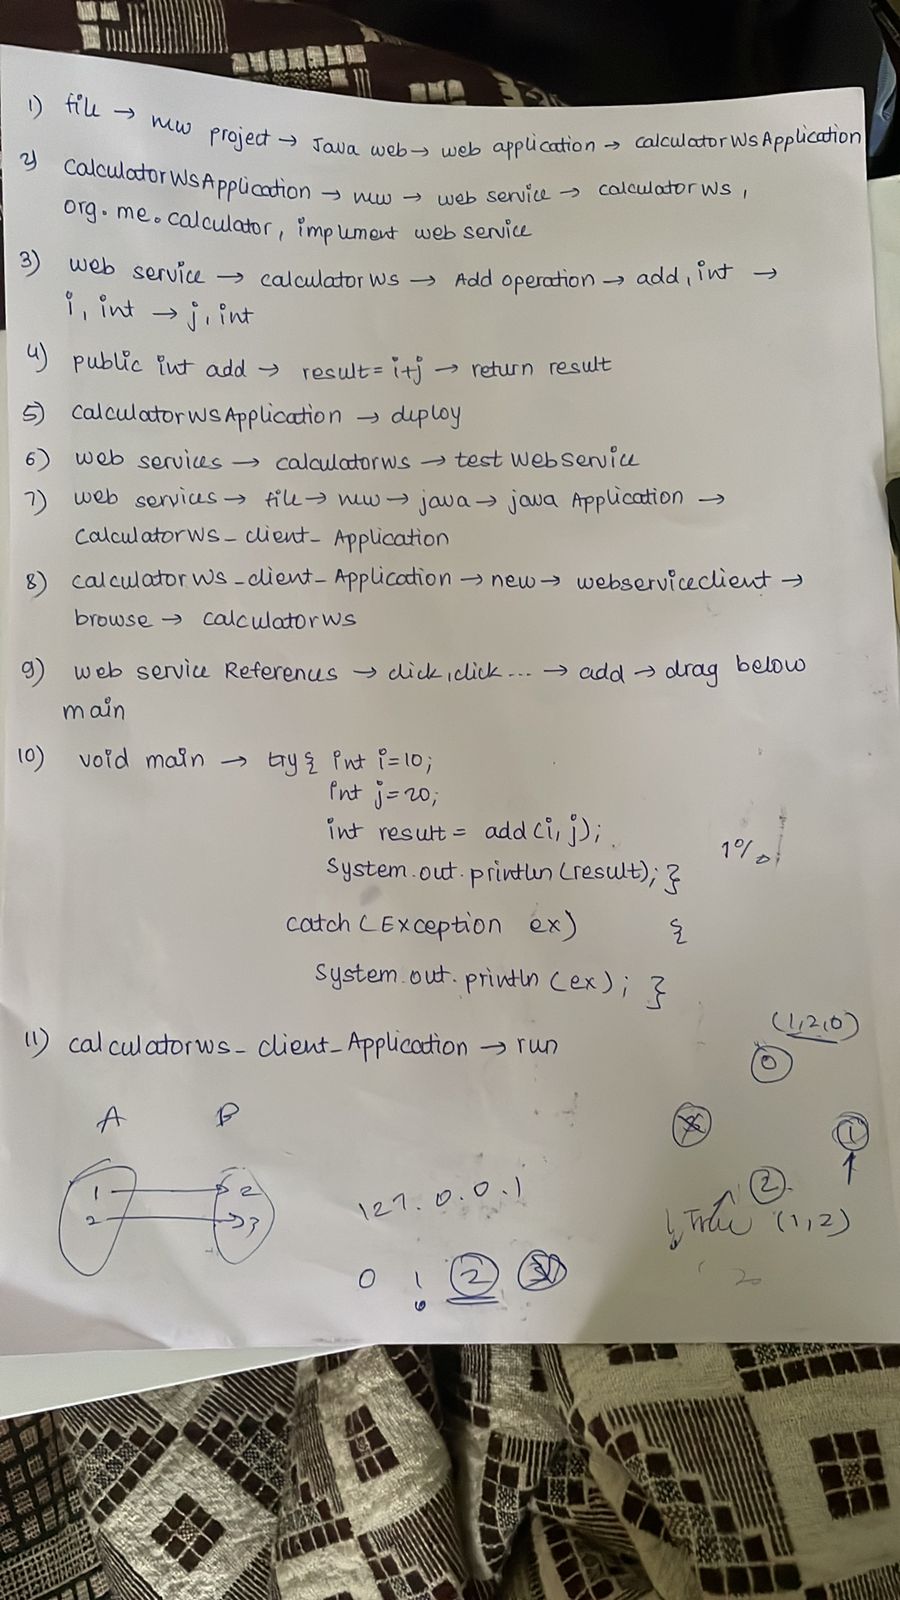 1) file → new project → Java web → web application → calculatorWsApplication
2) calculatorWsApplication → new → web service → calculatorWs,
org.me.calculator, implument web service
3) web service → calculatorWs → Add operation → add, int →
i, int → j, int
4) public int add → result = i+j → return result
5) calculatorWsApplication → deploy
6) web services → calculatorws → test Webservice
7) web services → file → new → java → java Application →
calculatorWs_client_Application
8) calculatorWs_client_Application → new → webserviceclient →
browse → calculatorws
9) web service References → click, click ... → add → drag below
main
10) void main → try { int i=10;
int j=20;
int result = add(i,j);
1%
System.out.println(result); }
catch (Exception ex) {
System.out.println(ex); }
(1,2,0)
0
11) calculatorws_client_Application → run
A B
1
1 → 2
2
2 → 3
127.0.0.1
True (1,2)
0 1 2 3
20